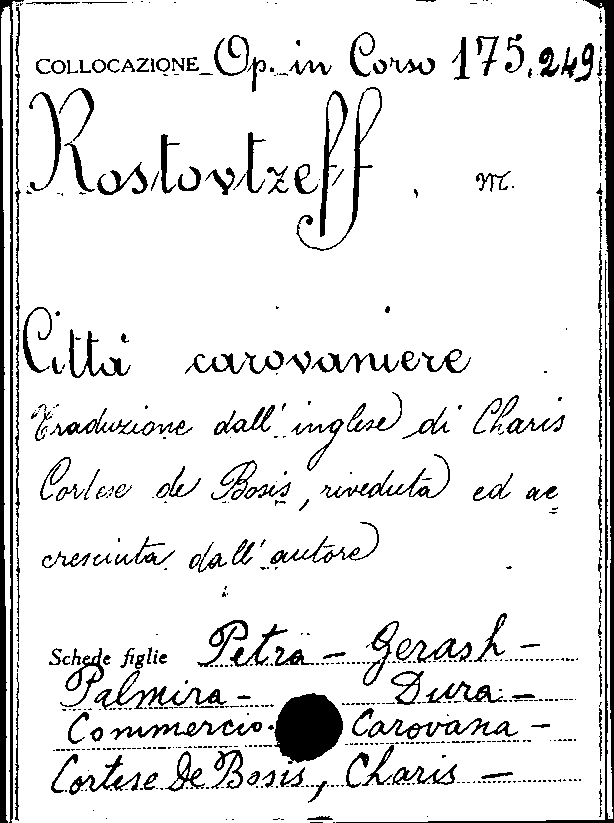 COLLOCAZIONE Op. in Corso 175.249
Rostovtzeff, M.
Città carovaniere
Traduzione dall'inglese di Charis
Cortese de Bosis, riveduta ed ac=
cresciuta dall'autore
Schede figlie Petra - Gerash -
Palmira - Dura -
Commercio. Carovana -
Cortese De Bosis, Charis -